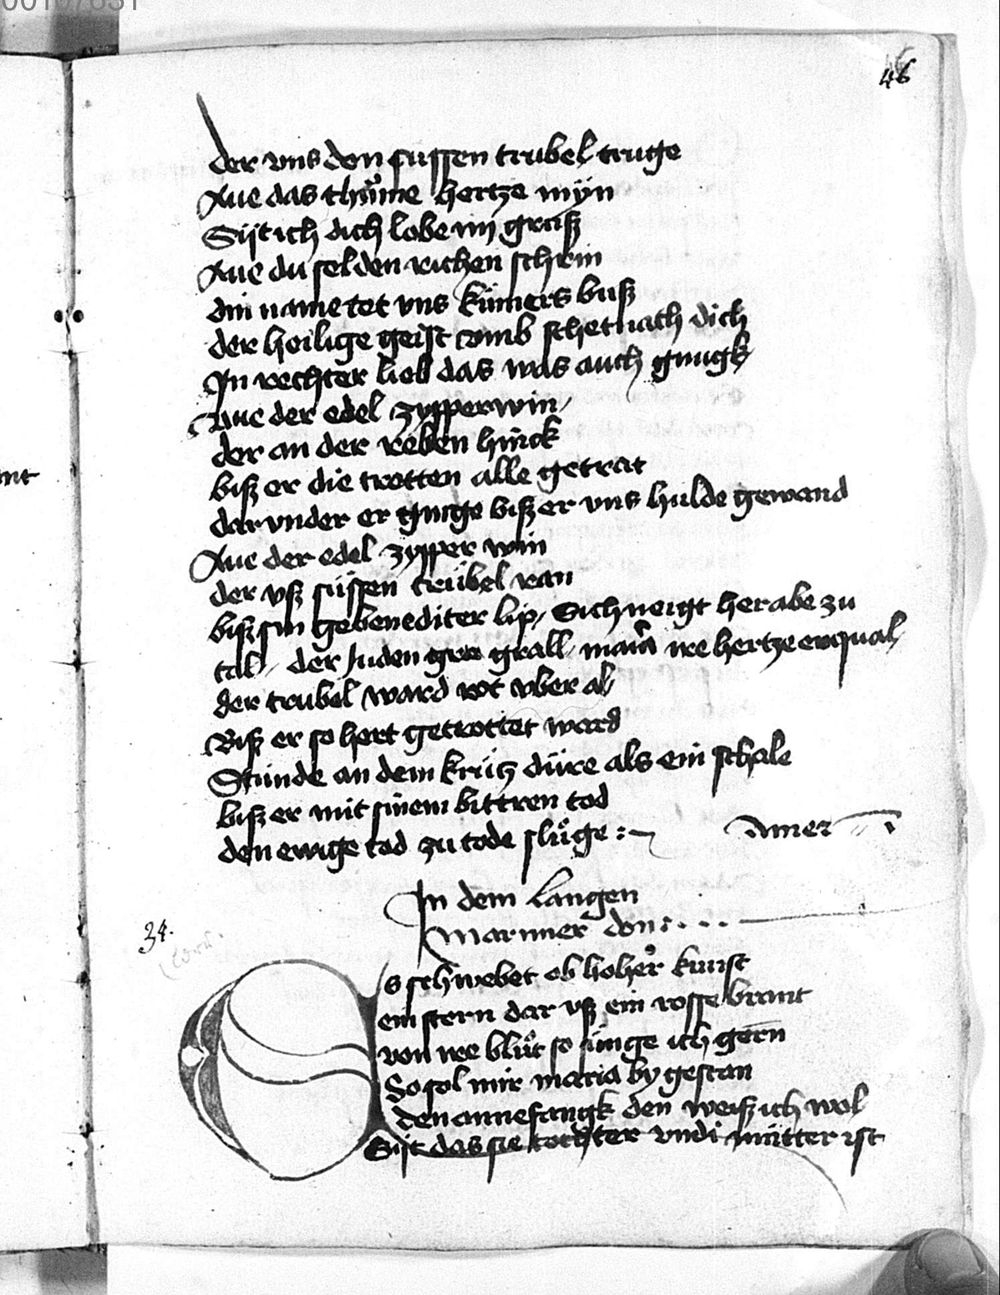 00107631
46
der vns den sussen trubel truge
Aue das thuͦme hertze myn
Sijt ich dich lobe vnn gruß
Aue du selden richen schrin
din name tot vns kumers buß
der heilige geist vmb schetnach dich
In rechter lieb das was auch gnugk
Aue der edel zypperwin
der an der reben hinck
biß er die trotten alle getrat
dar vnder er ginge biß er vns hulde gewand
Aue der edel zypper win
der vß sussen trubel ran
biß sin gebenediter lip / Sich neigt her abe zu
tal / der Juden gral / maria ire hertze enqual
der trubel ward rot vber al
Biß er so hert getrottet ward
Stunde an dem krutz dure als ein schale
biß er mit sinem bittren tod
den ewige tod zu tode sluͦge :~ Amer
In dem Langen
Marnner don
34.
Es schwebet ob hoher kunst
ein stern dar vß ein rosse brant
von ire bluͦt so singe ich gern
So sol mir maria by gestan
den annefangk den weiß ich wol
Sijt das sie tochter vnd mutter ist